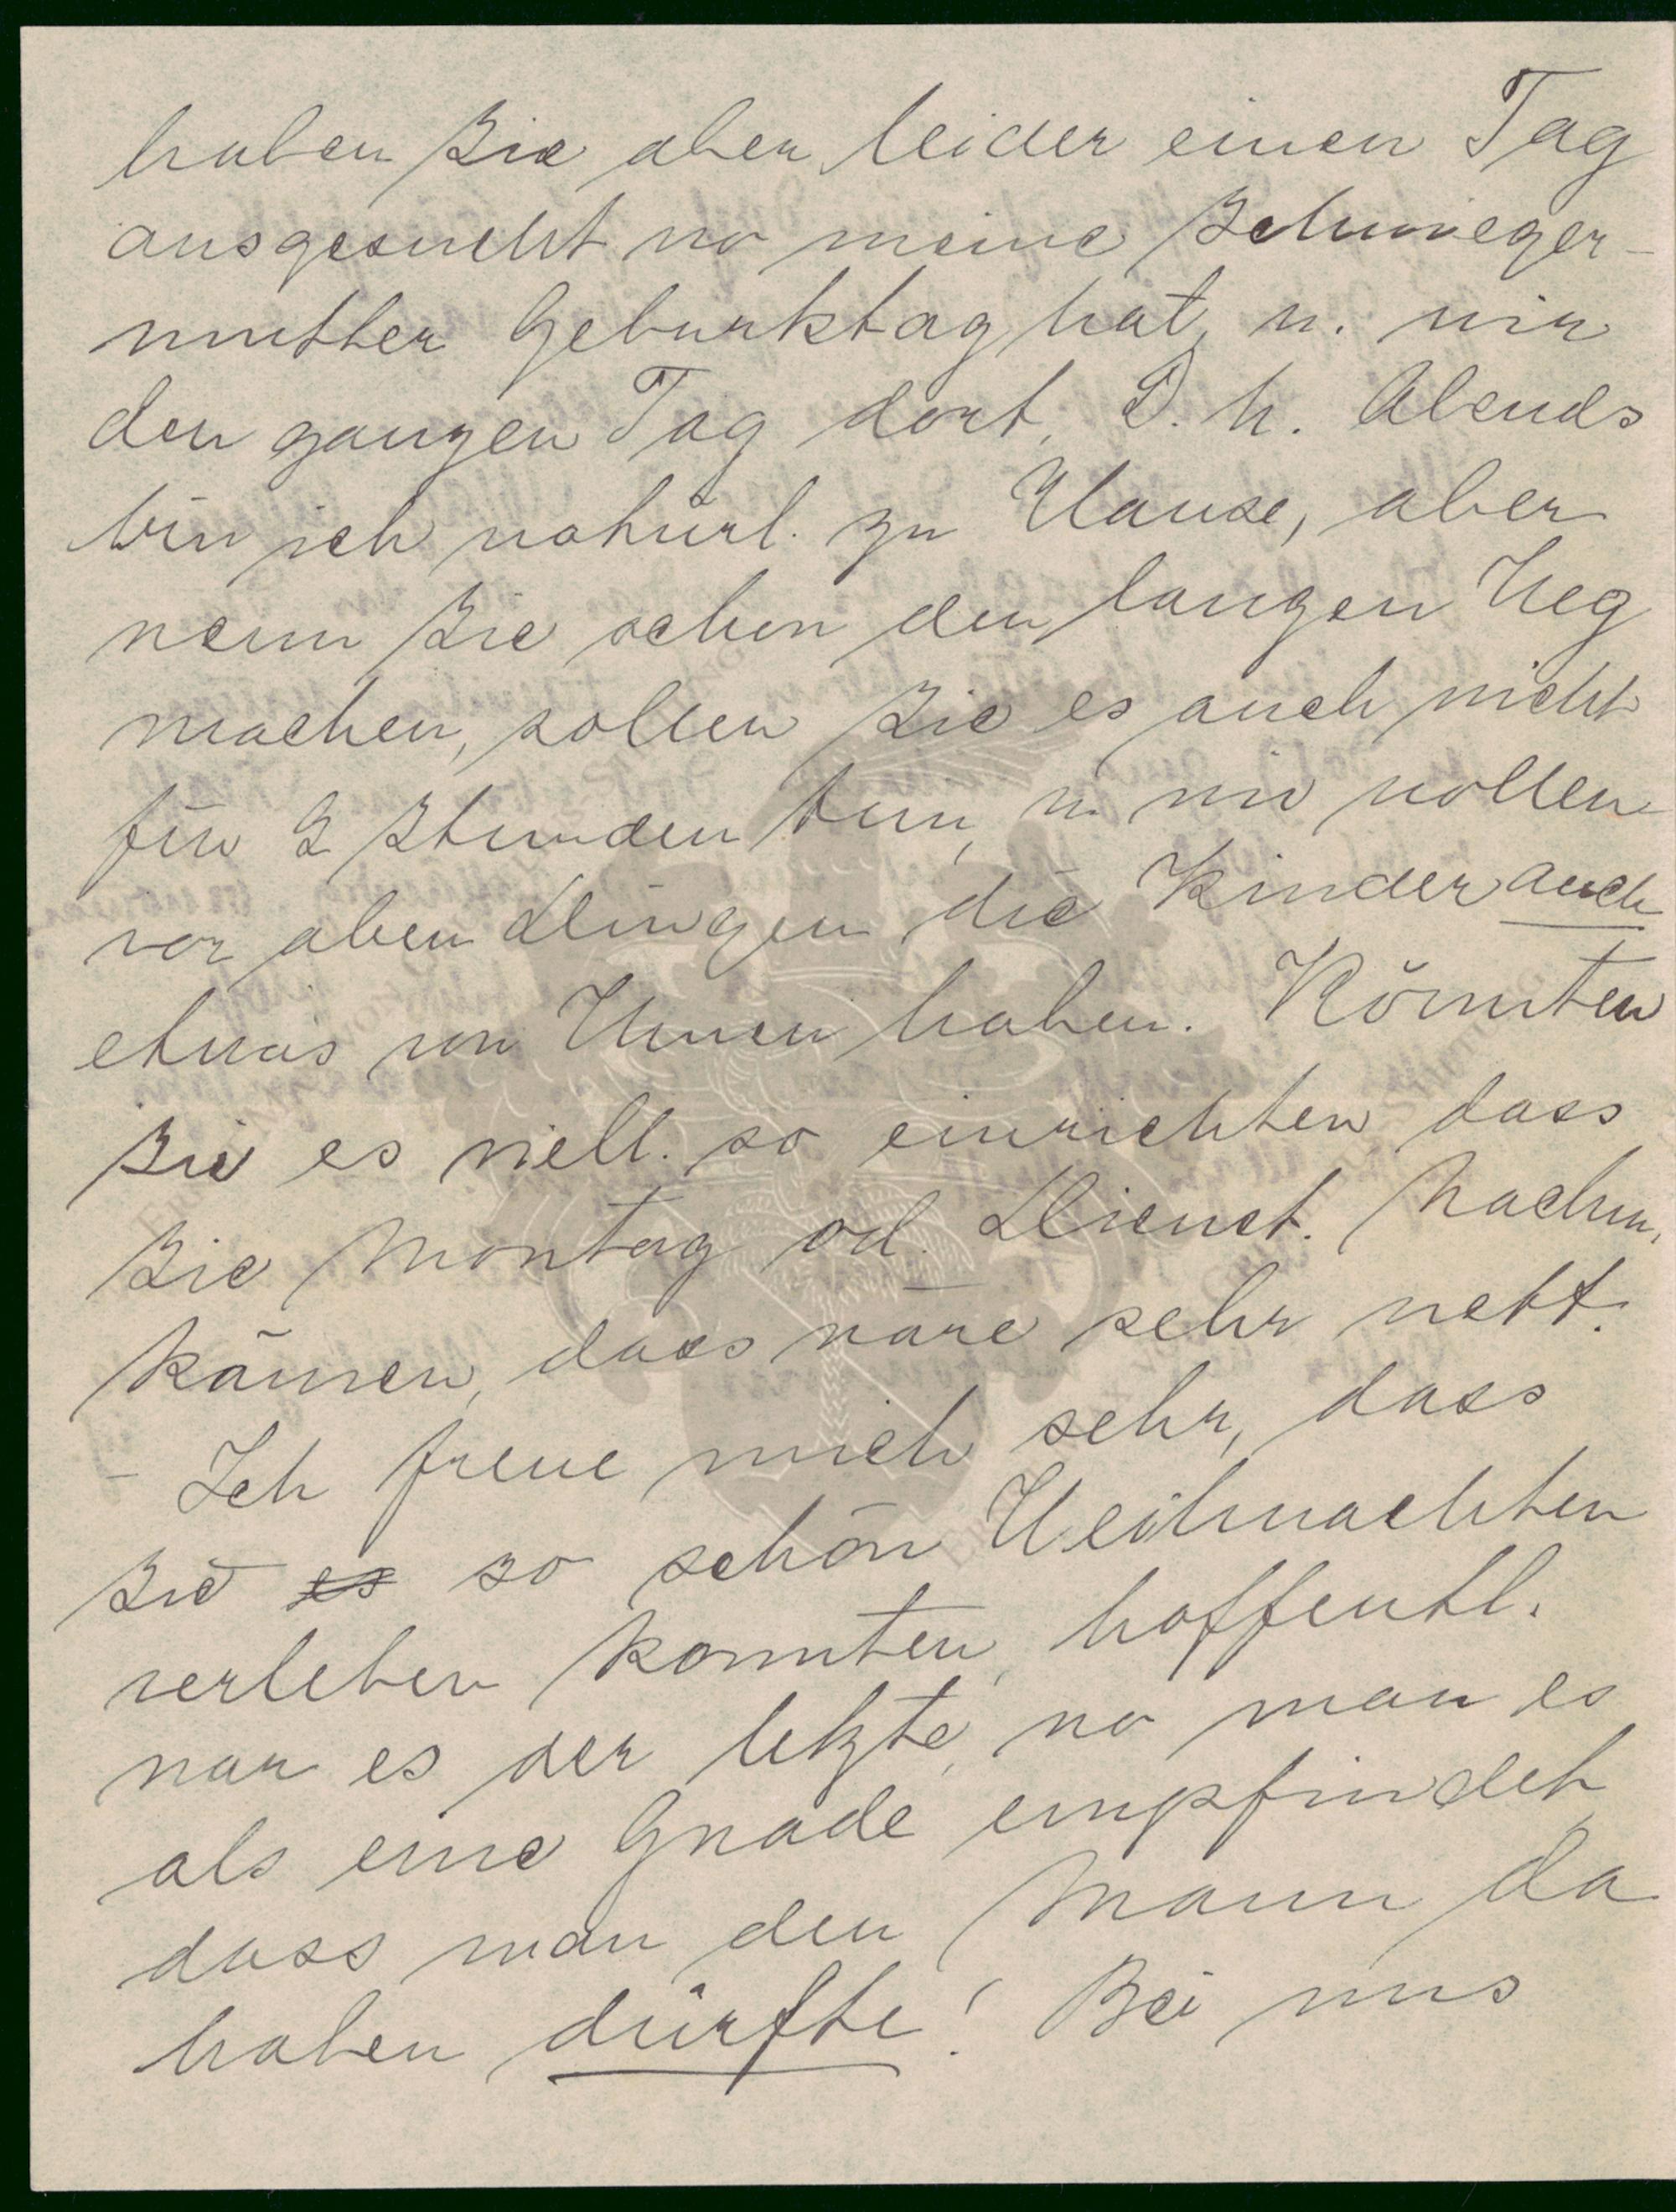 haben Sie aber leider einen Tag
ausgesucht wo meine Schwieger-
mutter Geburtstag hat, u. wir
den ganzen Tag dort, D. h. Abends
bin ich natürl. zu Hause, aber
wenn Sie schon den langen Weg
machen, sollen Sie es auch nicht
für 2 Stunden tun, u. wir wollen
vor allen Dingen die Kinder auch
etwas von Ihnen haben. Könnten
Sie es viell. so einrichten dass
Sie Montag od. Dienst. Nachm.
kämen, dass wäre sehr nett.
- Ich freue mich sehr, dass
Sie es so schön Weihnachten
verleben konnten, hoffentl.
war es der letzte, wo man es
als eine Gnade empfindet,
dass man den Mann da
haben dürfte! Bei uns